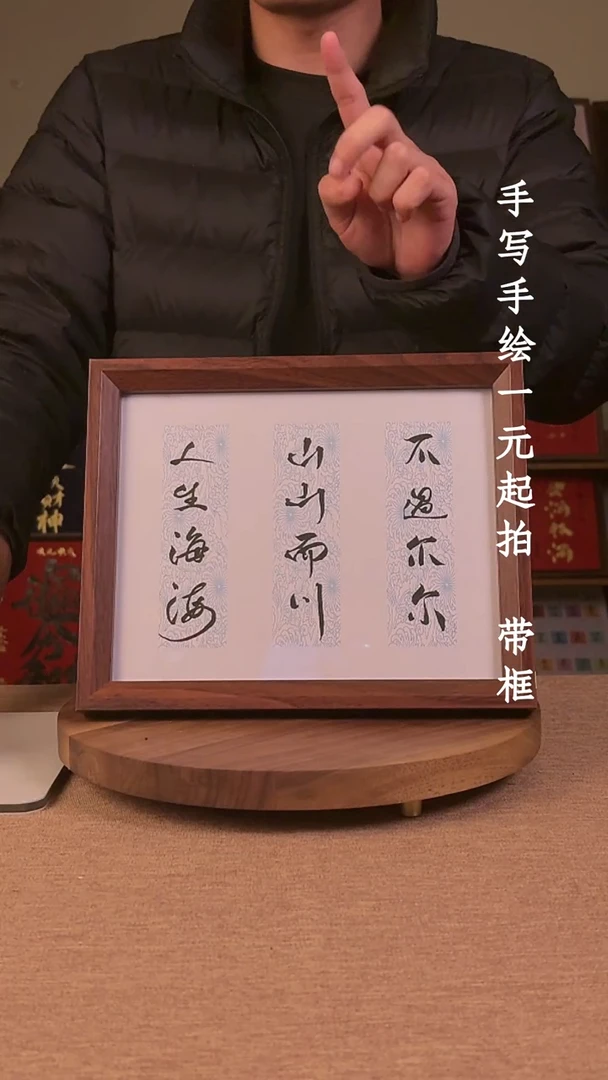 人生海海
山山而川
不過尔尔
手写手绘一元起拍 带框
财神